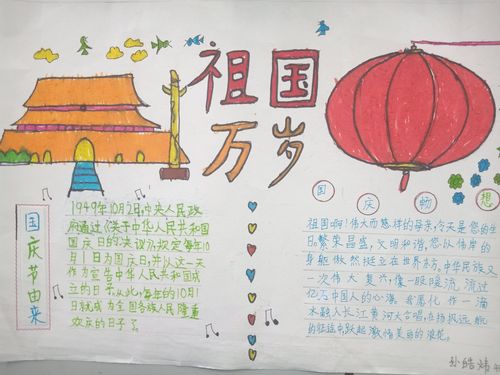 祖国
万岁
国庆节由来
1949年10月2日,中央人民政
府通过《关于中华人民共和国
国庆日的决议》,规定每年10
月1日为国庆日,并以这一天
作为宣告中华人民共和国成
立的日子。从此,每年的10月1
日就成为全国各族人民隆重
欢庆的日子了。
国庆畅想
祖国啊!伟大而慈祥的母亲,今天是您的生
日。繁荣昌盛,文明和谐,您以伟岸的
身躯傲然挺立在世界东方。中华民族又
一次伟大复兴,像一股暖流,流过
亿万中国人的心海。我愿化作一滴
水融入长江黄河大合唱,在扬帆远航
的征途中跃起激情美丽的浪花。
孙皓